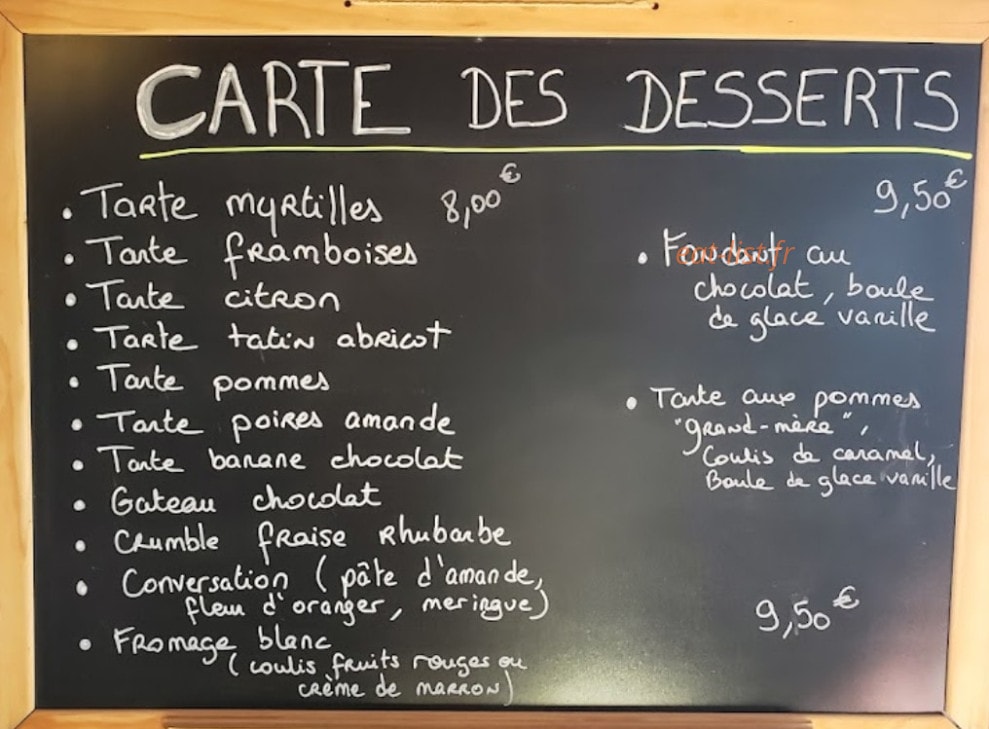 CARTE DES DESSERTS
• Tarte myrtilles 8,00€
• Tarte framboises
• Tarte citron
• Tarte tatin abricot
• Tarte pommes
• Tarte poires amande
• Tarte banane chocolat
• Gateau chocolat
• Crumble fraise Rhubarbe
• Conversation (pâte d'amande,
fleur d'oranger, meringue)
• Fromage blanc
(coulis fruits rouges ou
crème de marron)
9,50€
• Fondant au
eat-list.fr
chocolat, boule
de glace vanille
• Tarte aux pommes
"grand-mère",
Coulis de caramel,
Boule de glace vanille
9,50€